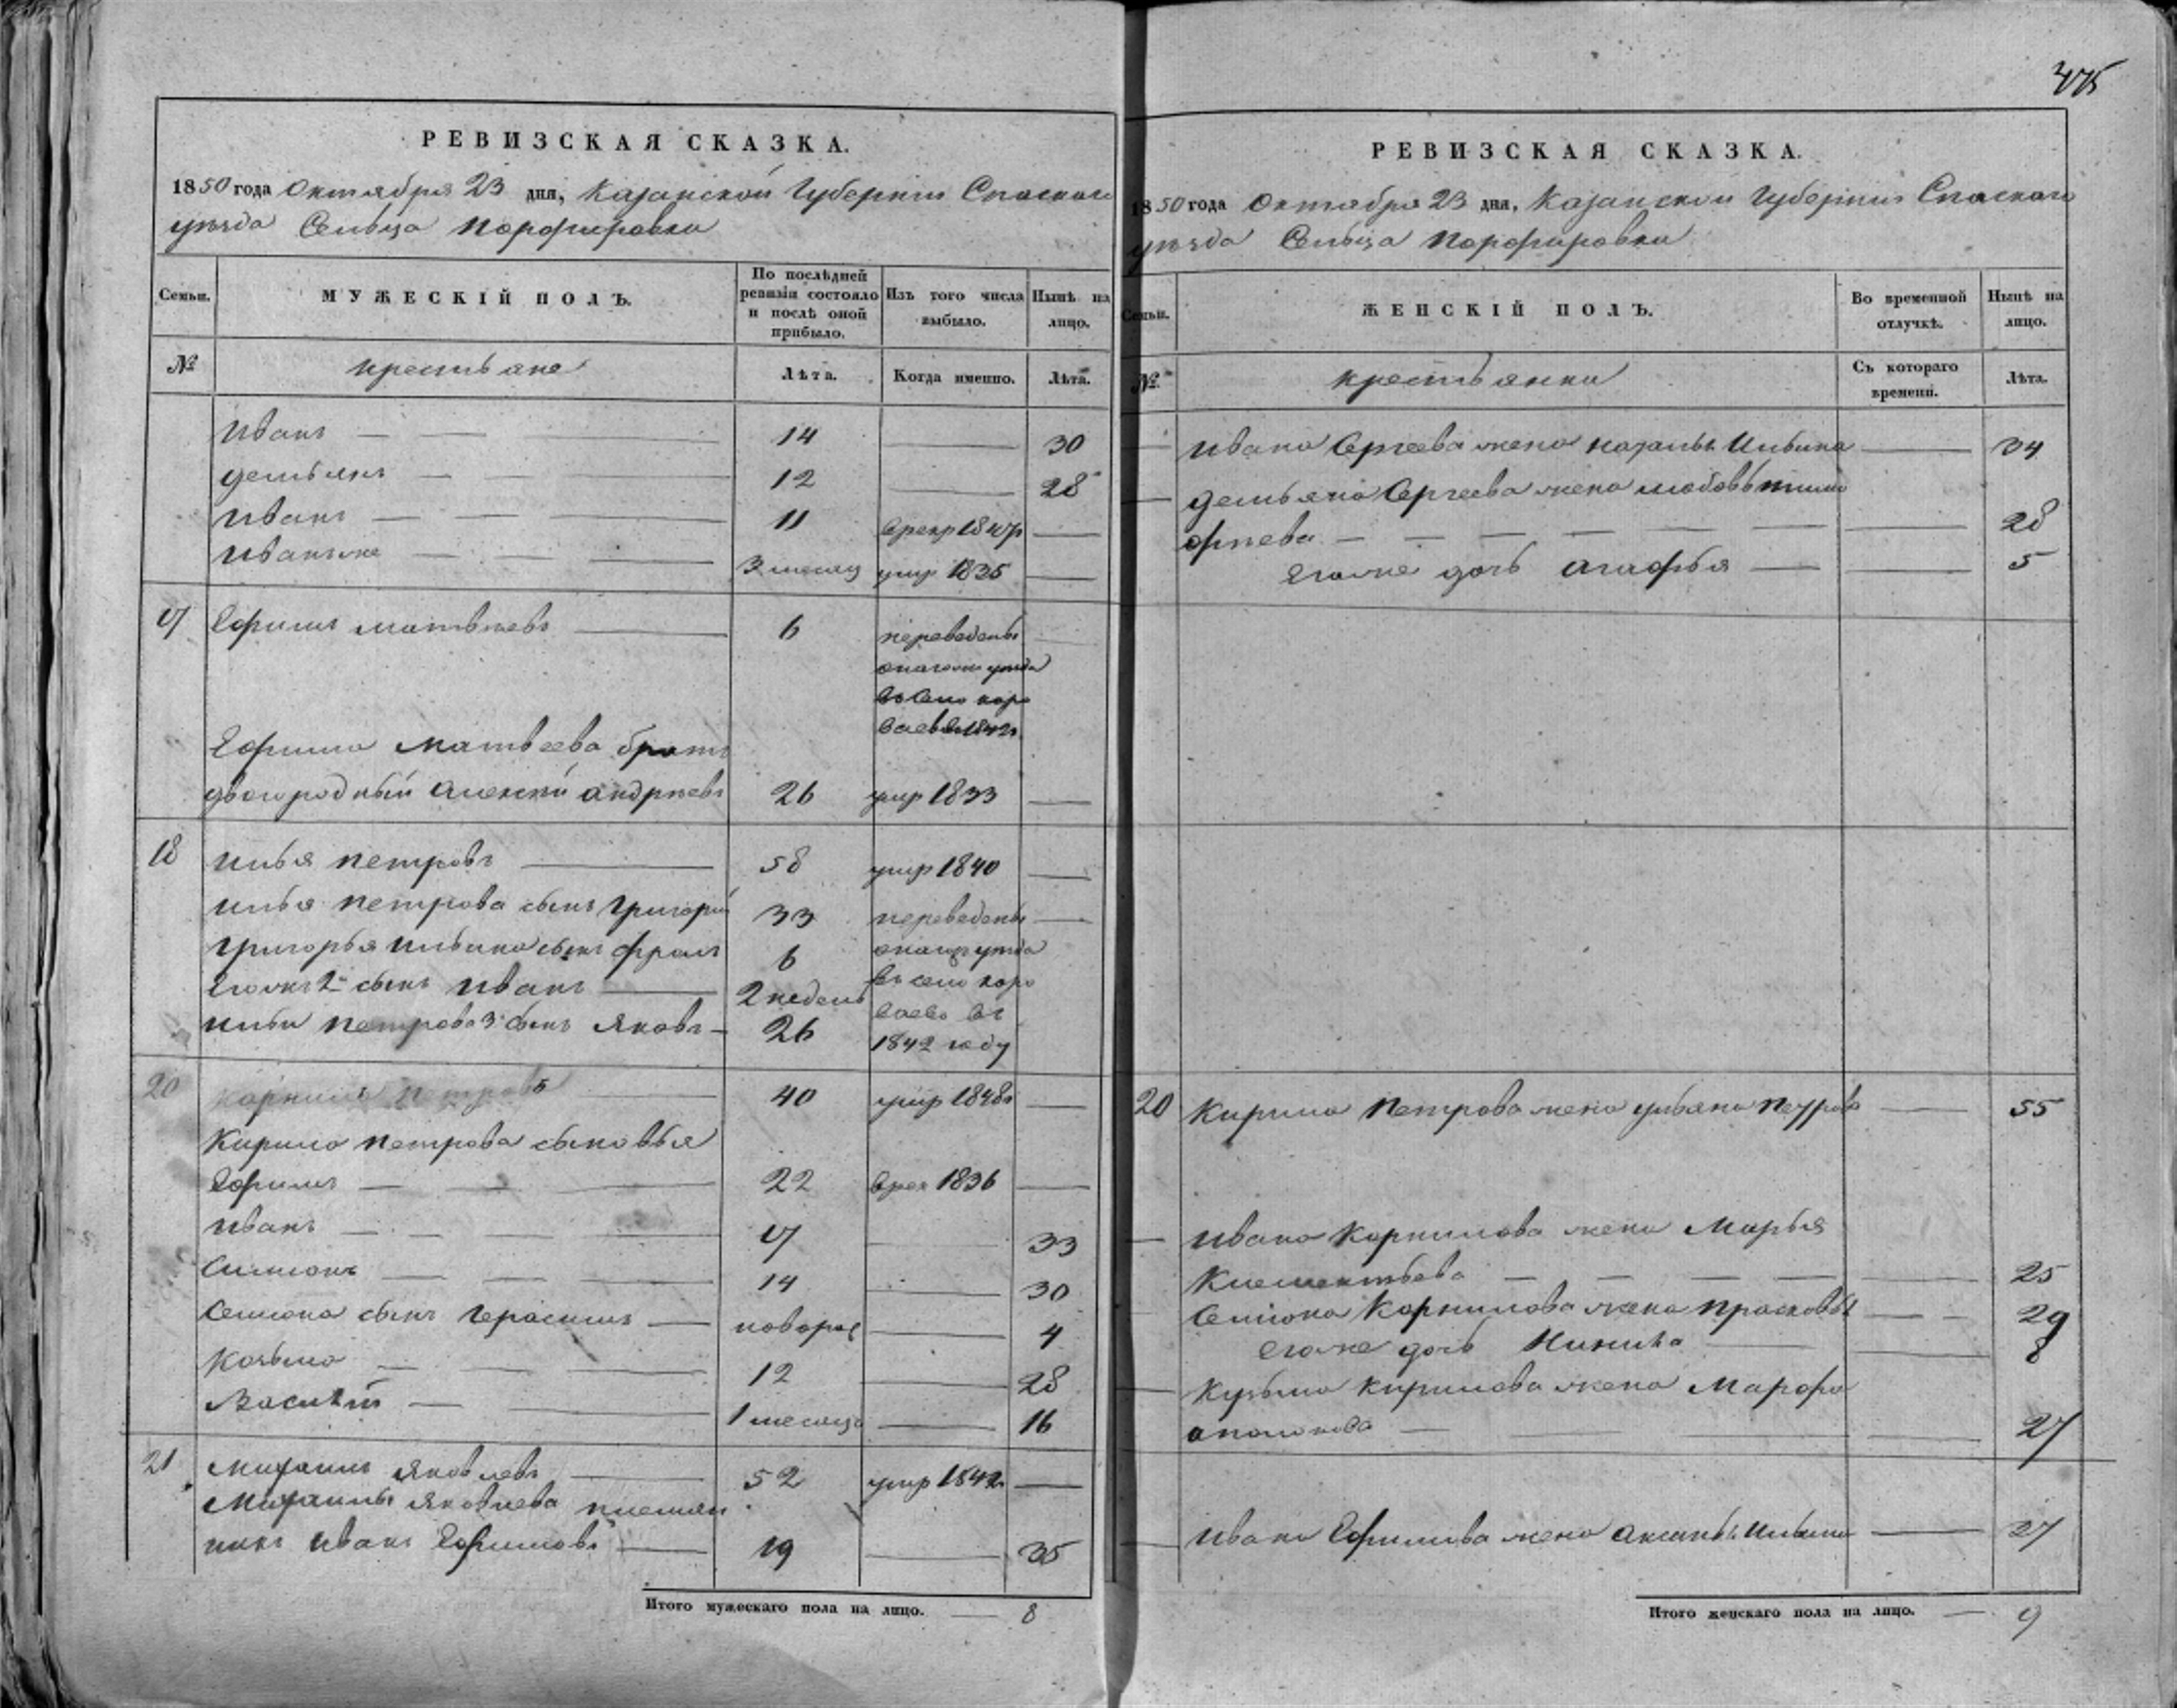 475
РЕВИЗСКАЯ СКАЗКА.
1850 года Октября 23 дня, Казанской Губернии Спаскаго
уѣзда Сельца Порфировки
Семьи.
МУЖЕСКІЙ ПОЛЪ.
По послѣдней
ревизіи состояло
и послѣ оной
прибыло.
Изъ того числа
выбыло.
Нынѣ на
лицо.
№
крестьяне
Лѣта.
Когда именно.
Лѣта.
Иванъ 14 30
Демьянъ 12 28
Иванъ 11 1847
Иванъ же 3 месяц умр 1835
17 Ефимъ Матвѣевъ 6 переведенъ
уѣзда
въ село кара
1842
Ефима Матвеева братъ
двоюродный Алексѣй Андрѣевъ 26 умр 1833
18 Илья Петровъ 58 умр 1840
Илья Петрова сынъ Григорій 33 переведены
Григорья Ильина сынъ Фролъ 6 уѣзда
Егоже 2й сынъ Иванъ 2 недель въ село кара
Ильи Петрова 3 сынъ Яковъ 26
1842 году
20 Карнилъ Петровъ 40 умр 1848
Кирила Петрова сыновья
Ефимъ 22 1836
Иванъ 17 33
Симионъ 14 30
Семиона сынъ Герасимъ новорож 4
Козьма 12 28
Василій 1 месяца 16
21 Михаилъ Яковлевъ 52 умр 1842
Михаилы Яковлева племян
никъ Иванъ Ефимовъ 19 35
Итого мужескаго пола на лицо. 8
РЕВИЗСКАЯ СКАЗКА.
1850 года Октября 23 дня, Казанской Губернии Спаскаго
уѣзда Сельца Порфировки
Семьи.
ЖЕНСКІЙ ПОЛЪ.
Во временной
отлучкѣ.
Нынѣ на
лицо.
№
крестьянки
Съ котораго
времени.
Лѣта.
Ивана Сергеева жена Наталья Ильина 34
Демьяна Сергеева жена Любовь Тимо
фѣева 28
Егоже дочь Агафья 5
20 Кирила Петрова жена Ульяна Петрова 55
Ивана Карнилова жена Марья
Клементьева 25
Семиона Карнилова жена Прасковья 29
Егоже дочь 8
Кузьма Кирилова жена Марфа
27
Ивана Ефимова жена Аксинья Ильина 27
Итого женскаго пола на лицо. 9